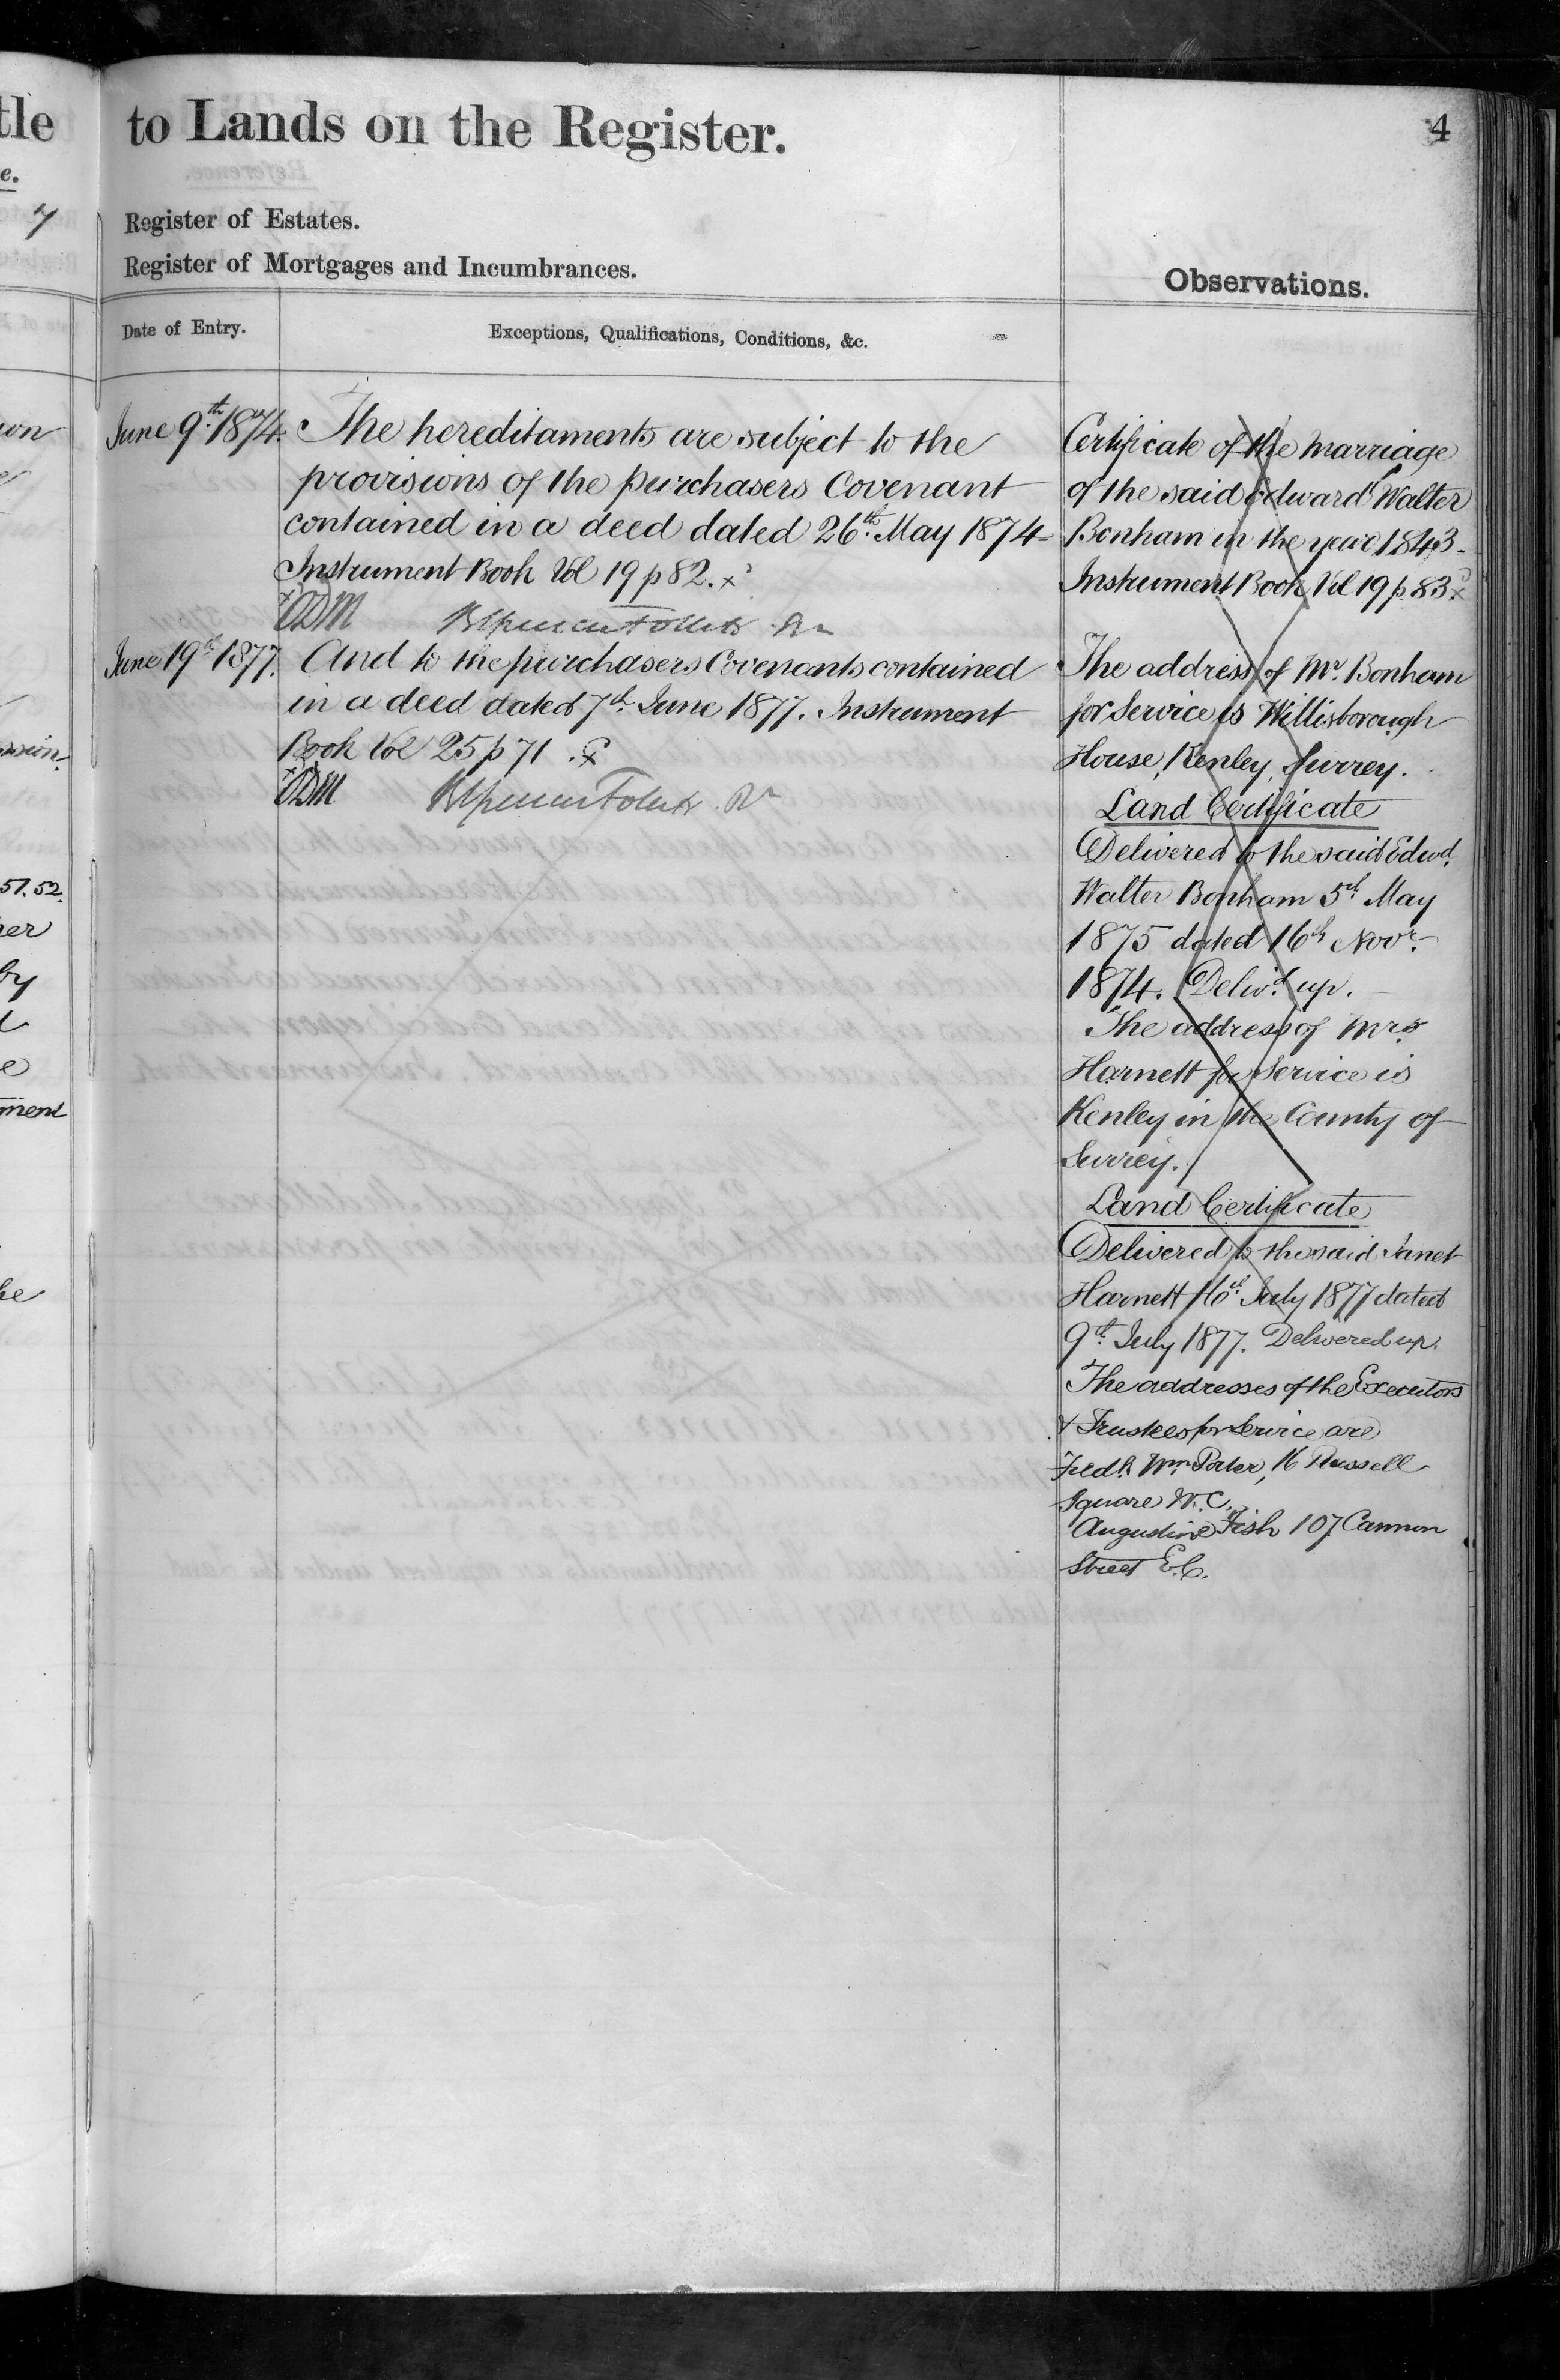 tle
to Lands on the Register.
4
e.
7
Register of Estates.
Register of Mortgages and Incumbrances.
Observations.
Date of Entry.
Exceptions, Qualifications, Conditions, &c.
June 9th. 1874.
The hereditaments are subject to the
provisions of the purchasers Covenant
contained in a deed dated 26th. May 1874
Instrument Book Vol 19 p 82. x
June 19th 1877.
And to the purchasers Covenants contained
in a deed dated 7th. June 1877. Instrument
Book Vol 25 p 71.
Certificate of the marriage
of the said Edward Walter
Bonham in the year 1843-
Instrument Book Vol 19 p 83 x
The address of Mr. Bonham
for Service is Willisborough
House, Kenley, Surrey.
Land Certificate
Delivered to the said Edwd.
Walter Bonham 5th May
1875 dated 16th Novr.
1874. Deliv.d up.
The address of Mrs
Harnett for Service is
Kenley in the County of
Surrey.
Land Certificate
Delivered to the said Janet
Harnett 16th July 1877 dated
9th. July 1877. Delivered up.
The addresses of the Executors
& Trustees for Service are
Fredk. Wm. Porter, 16 Russell
Square W.C.
Augustine Fish 107 Cannon
Street E.C.
51. 52.
by
ment